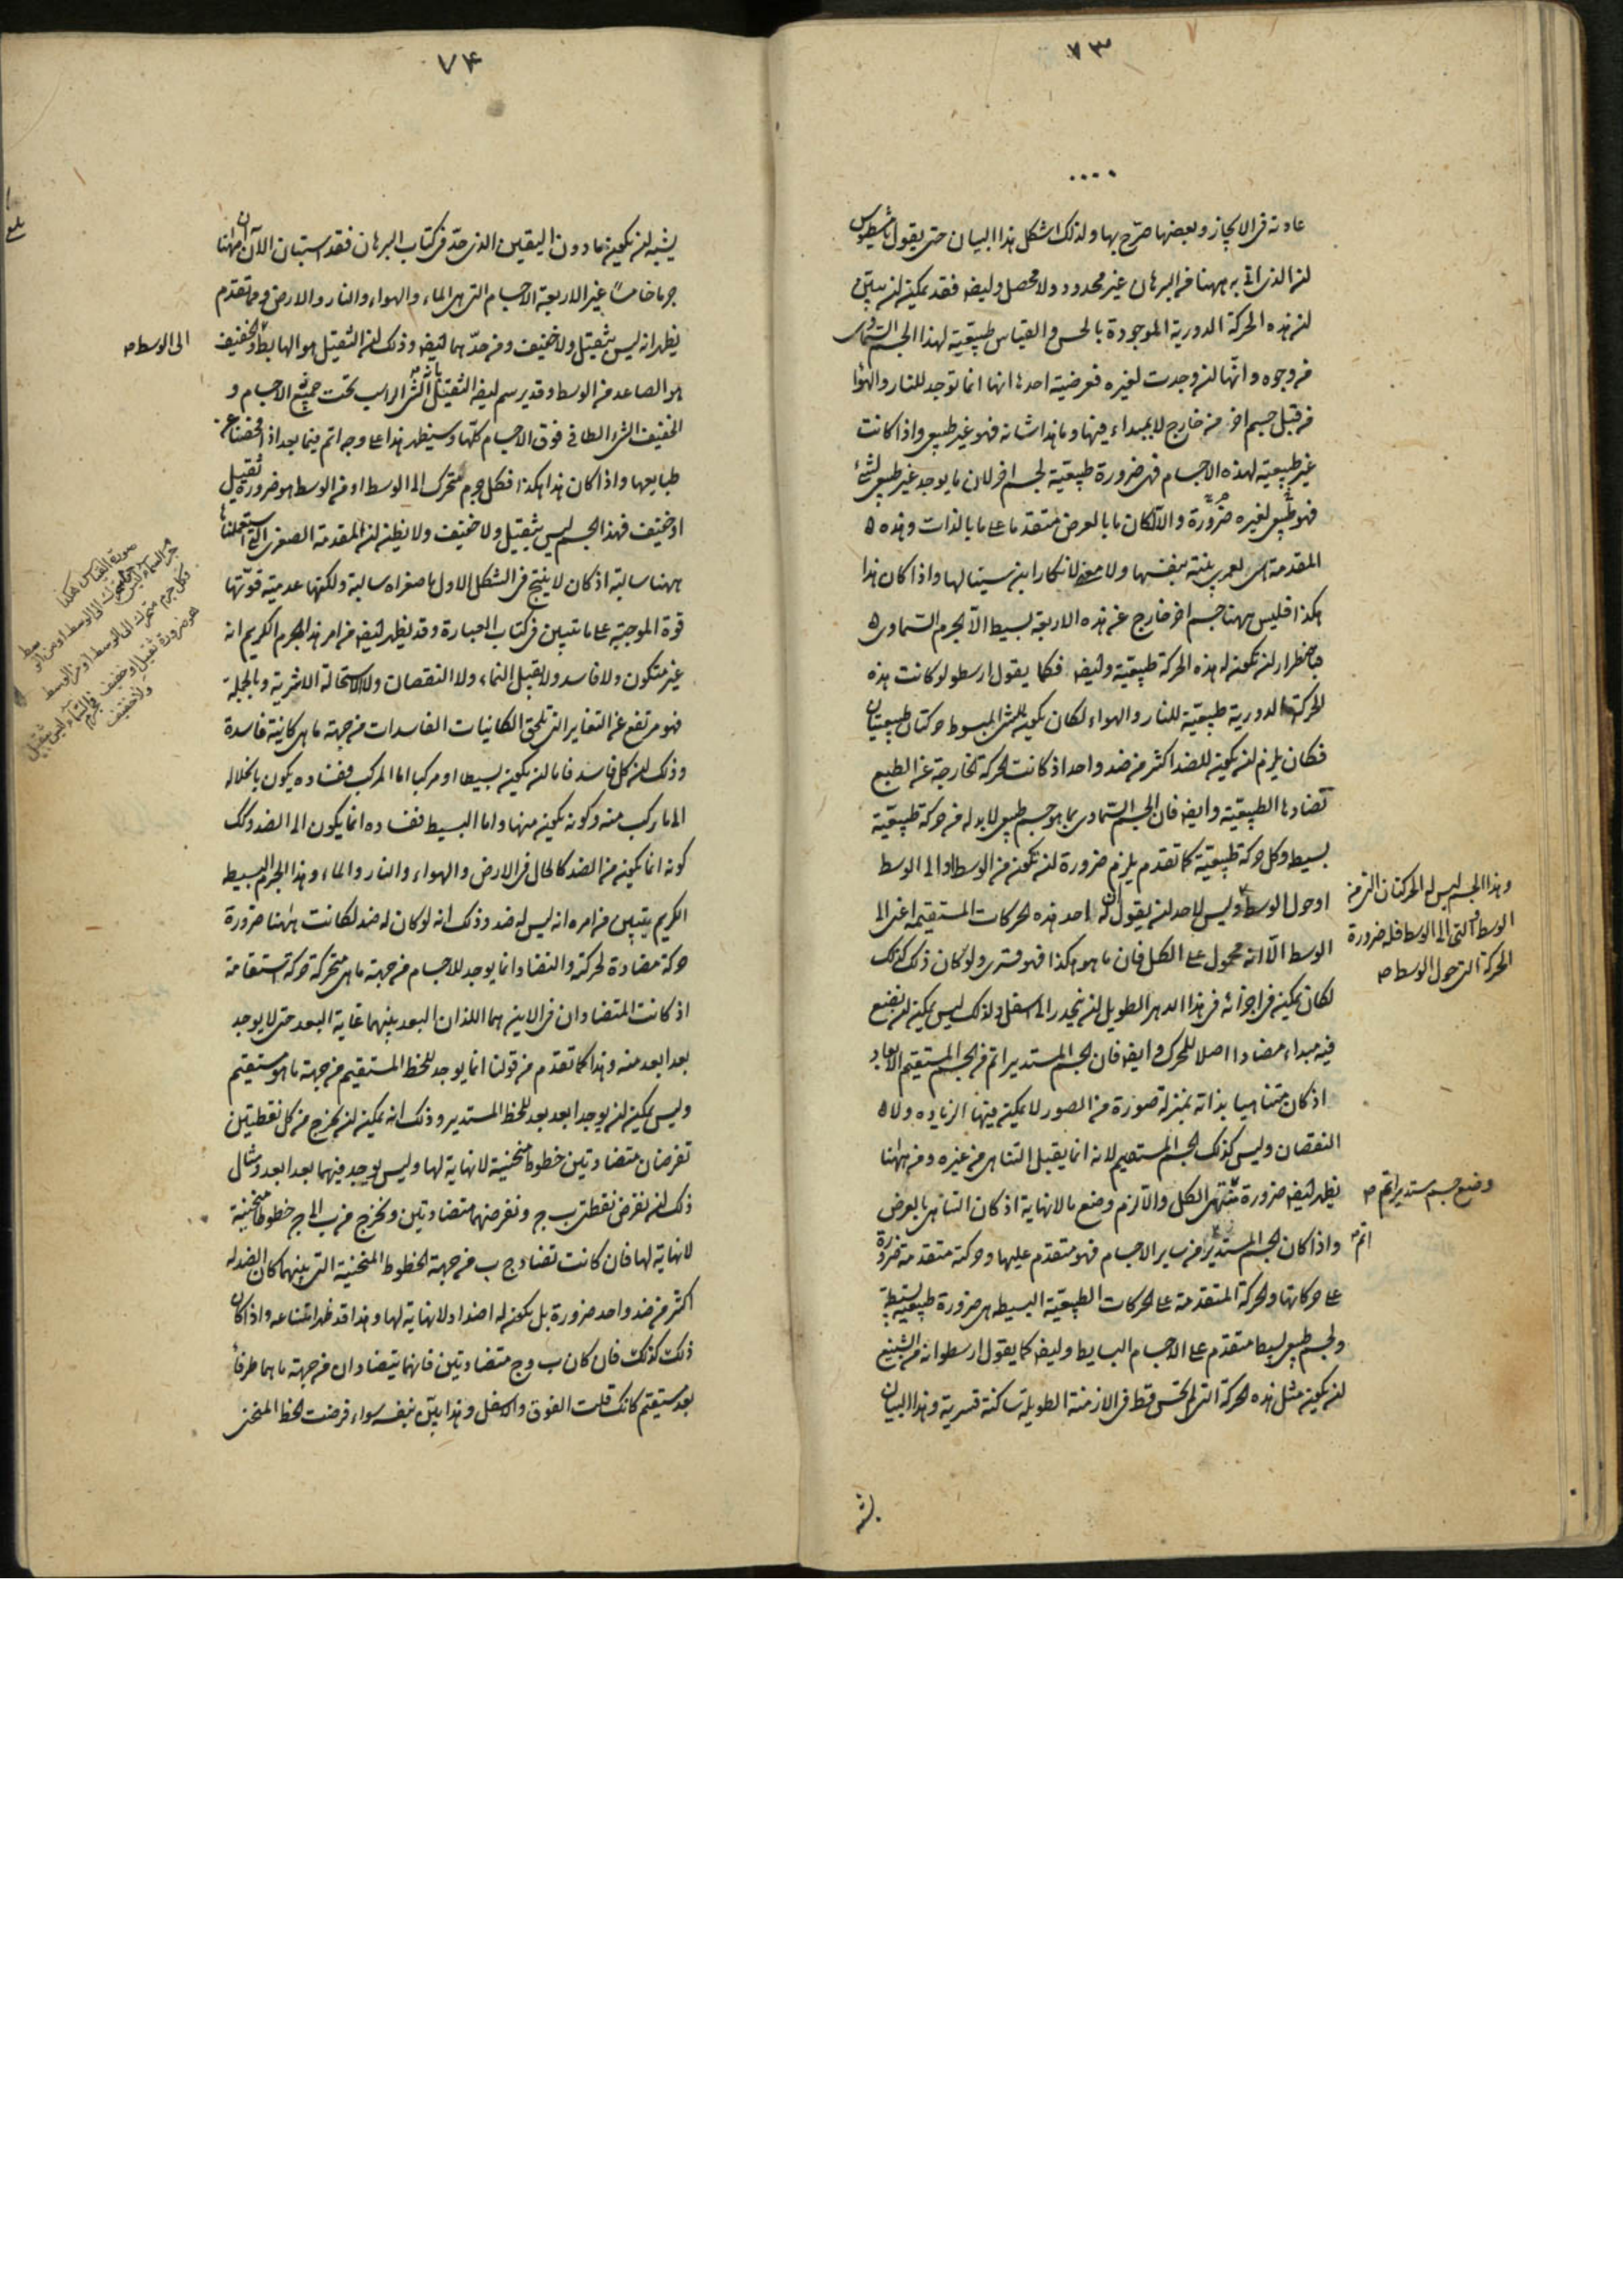 ٧٣
عادته فى الايجاز وبعضها صرّح بها ولذلك اشكل هذا البيان حتى يقول ثامسطيوس
ان الذى اتى به ههنا من البرهان غير محدود ولا محصل وايضا فقد يمكن ان يبيّن
ان هذه الحركة الدورية الموجودة بالحس والقياس طبيعية لهذا الجسم السماوى
من وجوه وانّها ان وجدت لغيره فعرضية احدها انها انما توجد للنار والهواء
من قبل جسم اخر من خارج لا بمبداء فيها وما هذا شانه فهو غير طبيعى واذا كانت
غير طبيعية لهذه الاجسام فهى ضرورة طبيعية لجسم اخر لان ما يوجد غير طبيعى لشئ
فهو طبيعى لغيره ضرورة والا لكان ما بالعرض متقدما على ما بالذات وهذه
المقدمة هى لعمرى بيّنة بنفسها ولا معنى لانكار ابن سينا لها واذا كان هذا
هكذا فليس ههنا جسم اخر خارج عن هذه الاربعة بسيط الّا الجرم السماوى
فباضطرار ان تكون له هذه الحركة طبيعية وايضا فكما يقول ارسطو لو كانت هذه
الحركة الدورية طبيعية للنار والهواء لكان يكون للشئ المبسوط حركتان طبيعيتان
فكان يلزم ان يكون للضد اكثر من ضد واحد اذ كانت الحركة الخارجة عن الطبع
تضادها الطبيعية وايضا فان الجسم السماوى بما هو جسم طبيعى لا بد له من حركة طبيعية
بسيطة وكل حركة طبيعية كما تقدم يلزم ضرورة ان تكون من الوسط او الى الوسط
او حول الوسط وليس لاحد ان يقول ان له احد هذه الحركات المستقيمة اعنى الى
وهذا الجسم ليس له الحركتان التى من
الوسط والتى الى الوسط فله ضرورة
الحركة التى حول الوسط ص
الوسط الّا انه محمول على الكل فان ما هو هكذا فهو قسرى ولو كان ذلك كذلك
لكان يمكن فى اجزائه فى هذا الدهر الطويل ان ينحدر الى اسفل ولذلك ليس يمكن ان نضع
فيه مبداء مضادا اصلا للمحرك وايضا فان الجسم المستدير اتم من الجسم المستقيم الابعاد
اذ كان متناهيا بذاته بمنزلة صورة من الصور لا يمكن فيها الزياده ولا
النقصان وليس كذلك الجسم المستقيم لانه انما يقبل التناهى من غيره ومن ههنا
يظهر ايضا ضرورة تناهى الكل والا لزم وضع ما لا نهاية اذ كان التناهى بالعرض
وضع جسم مستدير اتم ص
واذا كان الجسم المستدير اتم من ساير الاجسام فهو متقدم عليها وحركته متقدمة ضرورة
على حركاتها والحركة المتقدمة على الحركات الطبيعية البسيطه هى ضرورة طبيعية بسيطة
ولجسم طبيعى بسيط متقدم على الاجسام البسايط وايضا كما يقول ارسطو انه من الشنيع
ان يكون مثل هذه الحركة التى لم تحس قط فى الازمنة الطويلة ساكنة قسرية وهذا البيان
يشبه
٧۴
يشبه ان يكون ما دون اليقين الذى حدّ فى كتاب البرهان فقد استبان الآن ان ههنا
جرما خامسا غير الاربعة الاجسام التى هى الماء والهواء والنار والارض ومما تقدم
يظهر انه ليس بثقيل ولا خفيف ومن حدّهما ايضا وذلك ان الثقيل هو الهابط والخفيف
الى الوسط ص
هو الصاعد من الوسط وقد يرسم ايضا الثقيل بانه الشئ الراسب تحت جميع الاجسام و
الخفيف الشئ الطافى فوق الاجسام كلّها وسيظهر هذا على وجه اتم فيما بعد اذا فحصنا عن
طبايعها واذا كان هذا هكذا فكل جرم متحرك الى الوسط او من الوسط هو ضرورة ثقيل
او خفيف فهذا الجسم ليس بثقيل ولا خفيف ولا يظن ان المقدمة الصغرى التى استعملناها
ههنا سالبة اذ كان لا ينتج فى الشكل الاول ما صغراه سالبة ولكنها عدمية قوّتها
قوة الموجبة على ما تبين فى كتاب العبارة وقد يظهر ايضا من امر هذا الجرم الكريم انه
صورة القياس هكذا
جرم السماء ليس متحرك الى الوسط او من الوسط
وكل جرم متحرك الى الوسط او من الوسط
هو ضرورة ثقيل او خفيف فجرم السماء ليس بثقيل
ولا خفيف
غير متكون ولا فاسد ولا يقبل النماء ولا النقصان ولا الاستحالة الاثرية وبالجملة
فهو مرتفع عن التغاير التى تلحق الكاينات الفاسدات من جهة ما هى كاينة فاسدة
وذلك ان كل فاسد فاما ان يكون بسيطا او مركبا اما المركب ففساده يكون بانحلاله
الى ما ركب منه وكونه يكون منها واما البسيط ففساده انما يكون الى الضد وكذلك
كونه انما يكون من الضد كالحال فى الارض والهواء والنار والماء وهذا الجرم البسيط
الكريم يتبين من امره انه ليس له ضد وذلك انه لو كان له ضد لكانت ههنا ضرورة
حركة مضادة لحركته والتضاد انما يوجد للاجسام من جهة ما هى متحركة حركة استقامة
اذ كانت المتضادان فى الاين هما اللذان البعد بينهما غاية البعد حتى لا يوجد
بعد ابعد منه وهذا كما تقدم من قولنا انما يوجد للخط المستقيم من جهة ما هو مستقيم
وليس يمكن ان يوجد ابعد بعد للخط المستدير وذلك انه يمكن ان يخرج من كل نقطتين
تفرضان متضادتين خطوط منحنية لا نهاية لها وليس يوجد فيهما بعد ابعد ومثال
ذلك ان نفرض نقطتى ب ج ونفرضهما متضادتين ونخرج من ب الى ج خطوطا منحنية
لا نهاية لها فان كانت تضاد ج ب من جهة الخطوط المنحنية التى بينهما كان الضد له
اكثر من ضد واحد ضرورة بل يكون له اضداد لا نهاية لها وهذا قد ظهر امتناعه واذا كان
ذلك كذلك فان كان ب وج متضادتين فانهما يتضادان من جهة ما هما طرفا
بعد مستقيم كانك قلت الفوق والاسفل وهذا بيّن بنفسه سواء فرضت الخط المنحنى